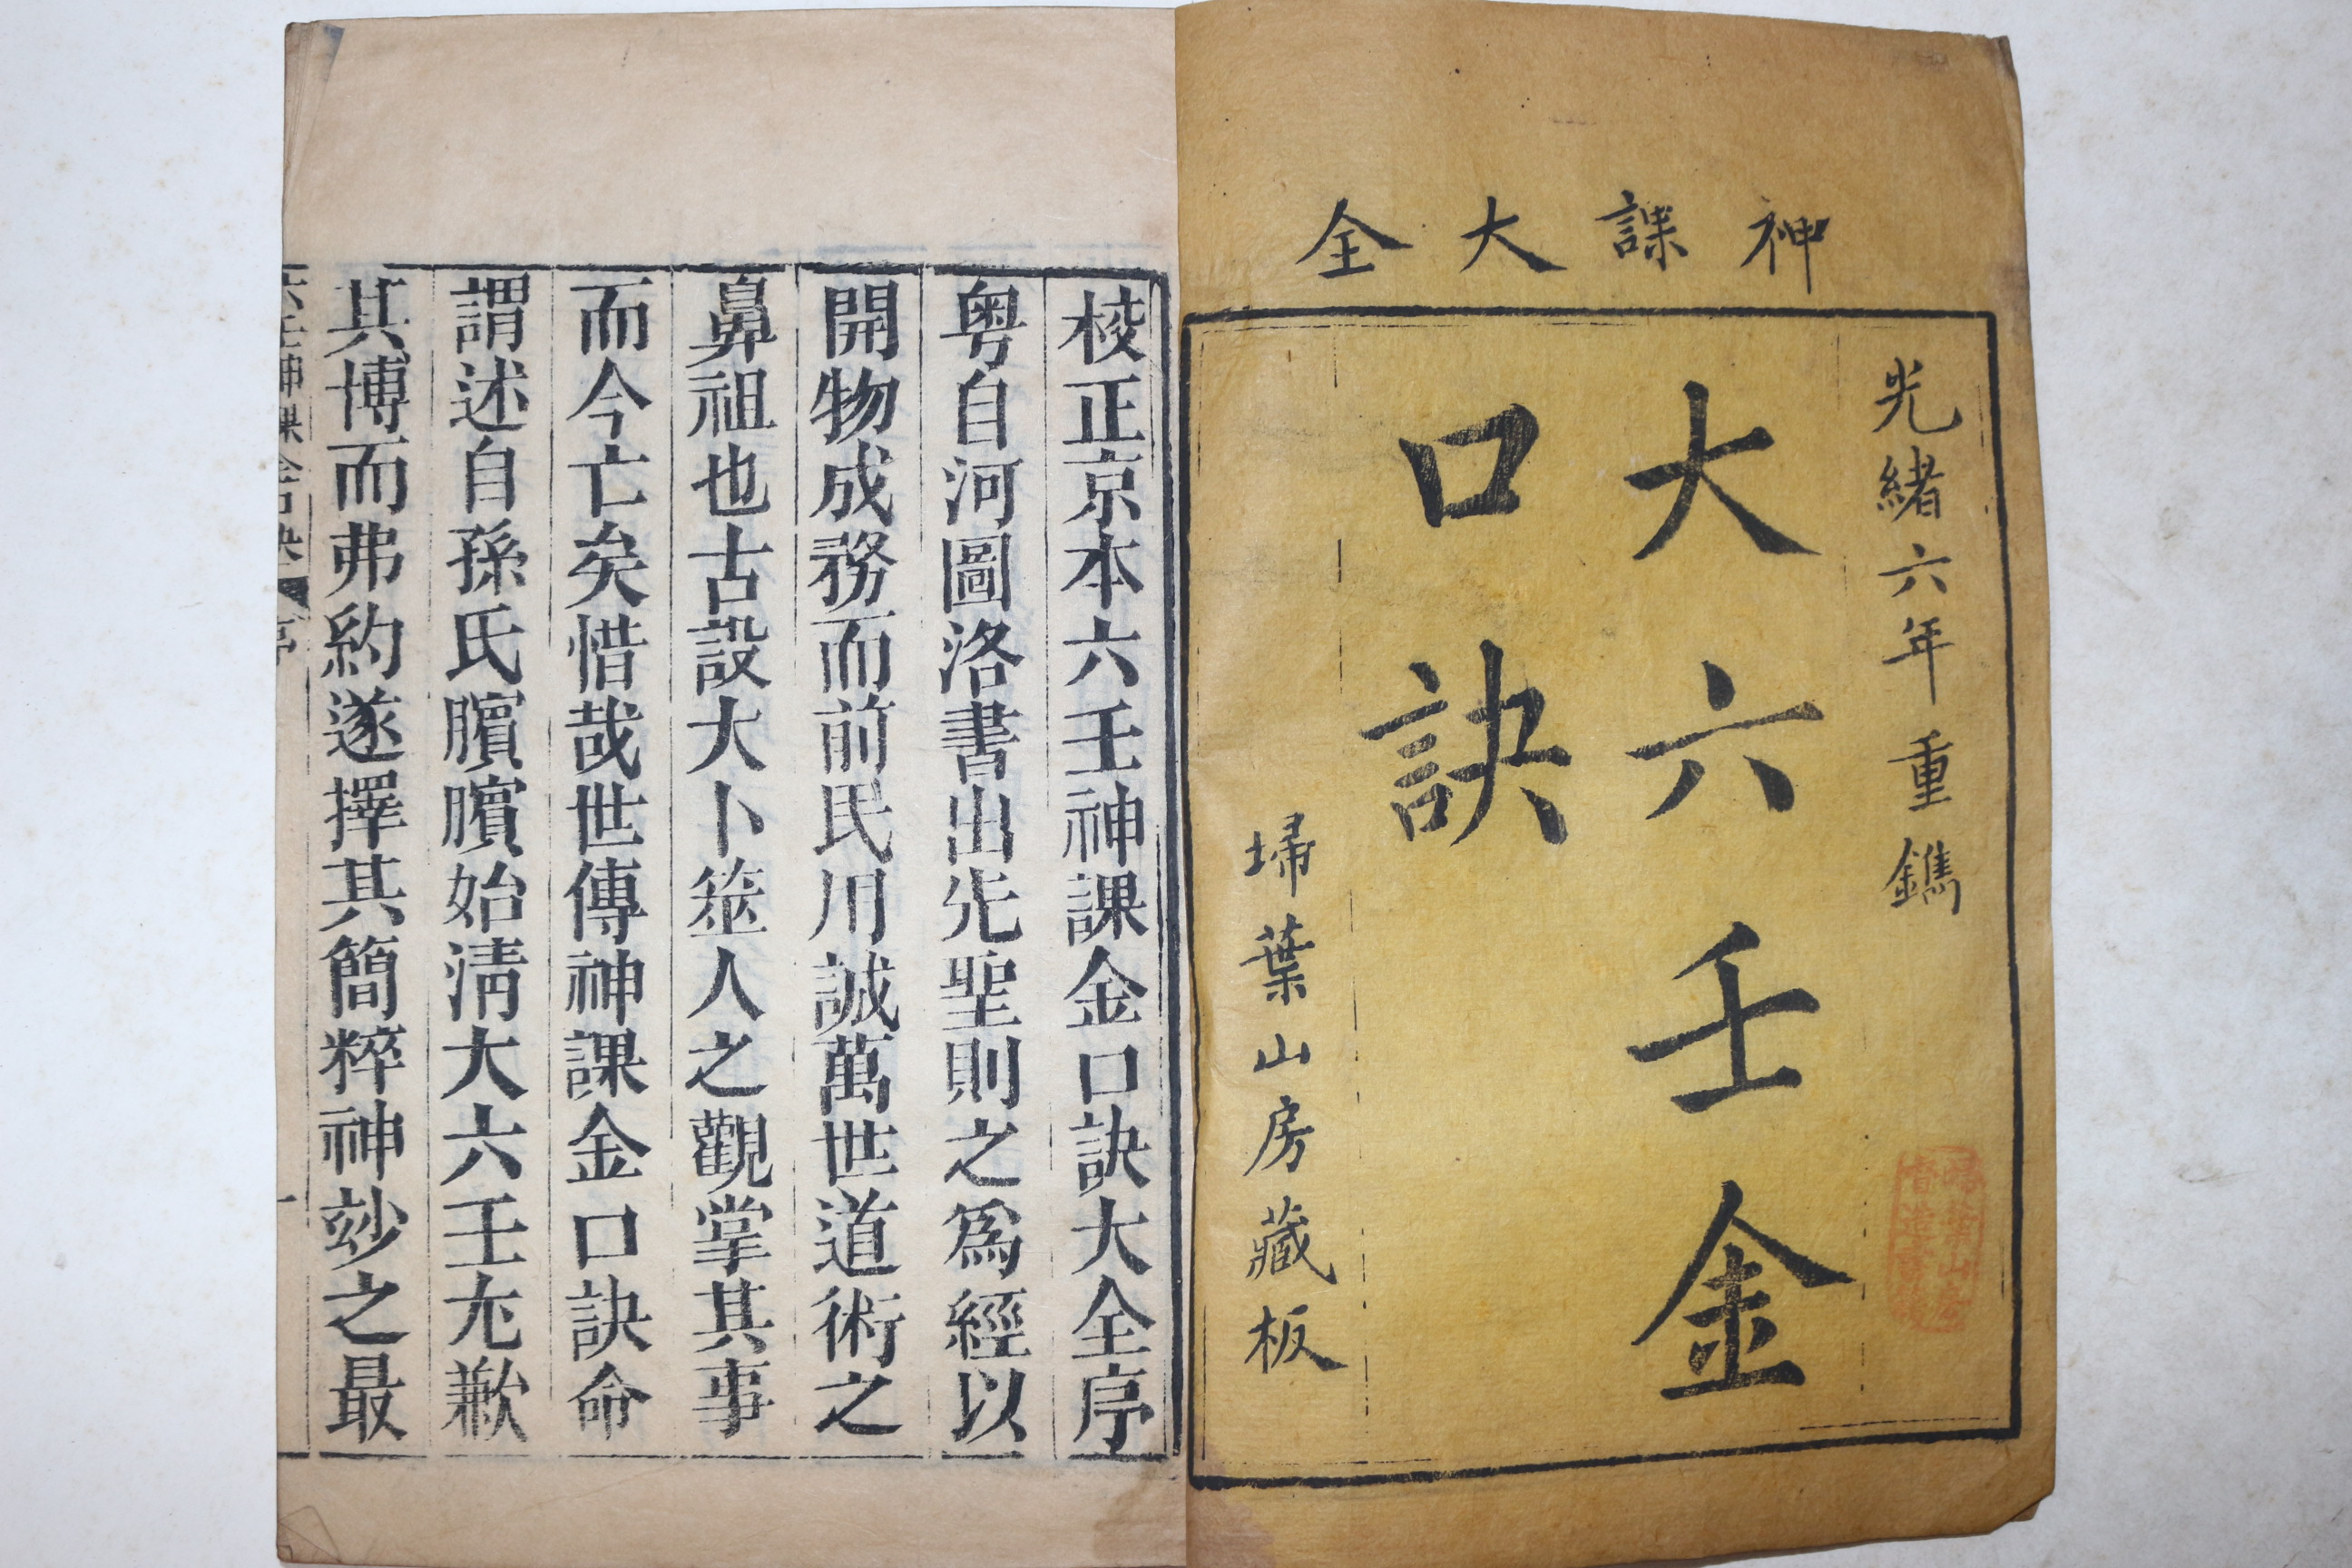 神課大全
光緒六年重鐫
大六壬金
口訣
埽葉山房藏板
校正京本六壬神課金口訣大全序
粵自河圖洛書出先聖則之爲經以
開物成務而前民用誠萬世道術之
鼻祖也古設大卜筮人之觀掌其事
而今亡矣惜哉世傳神課金口訣命
謂述自孫氏臏臏始淸大六壬尢歉
其博而弗約遂擇其簡粹神玅之最
六壬神課金口訣 序 一